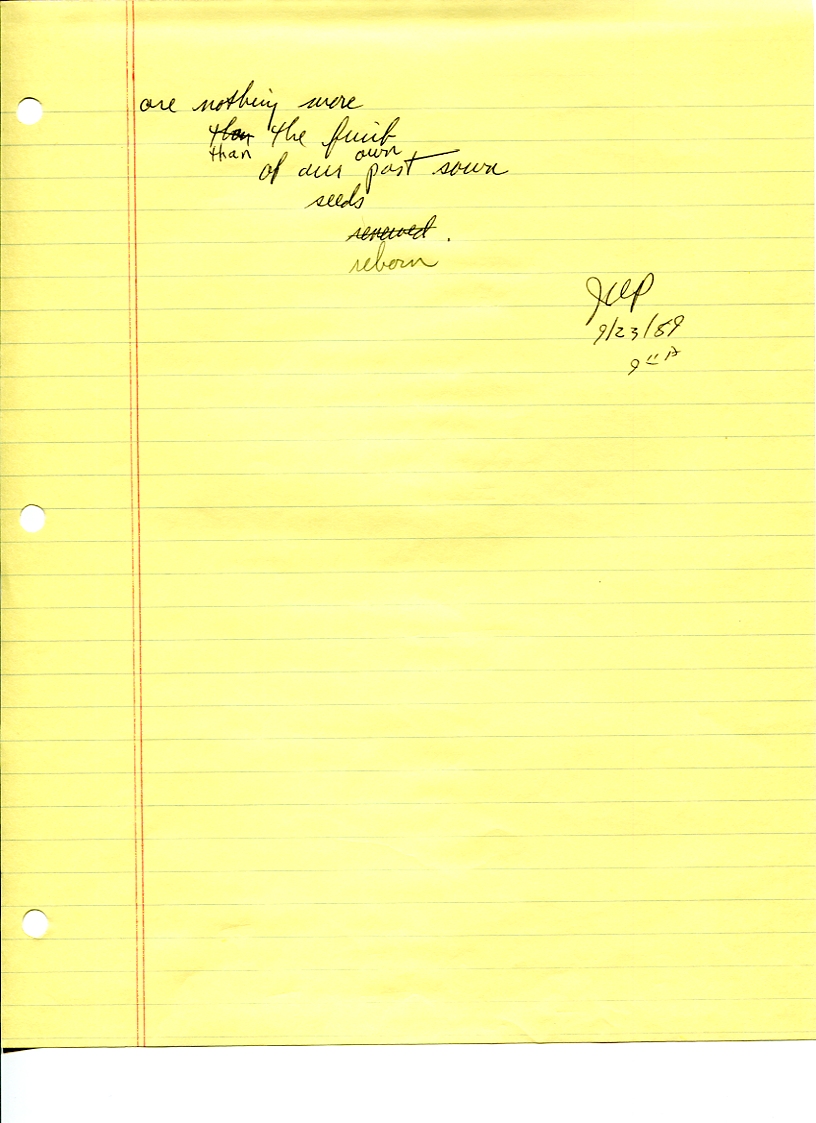 are nothing more
than the fruit
than own
of our past sown
seeds
renewed.
reborn
9/23/89